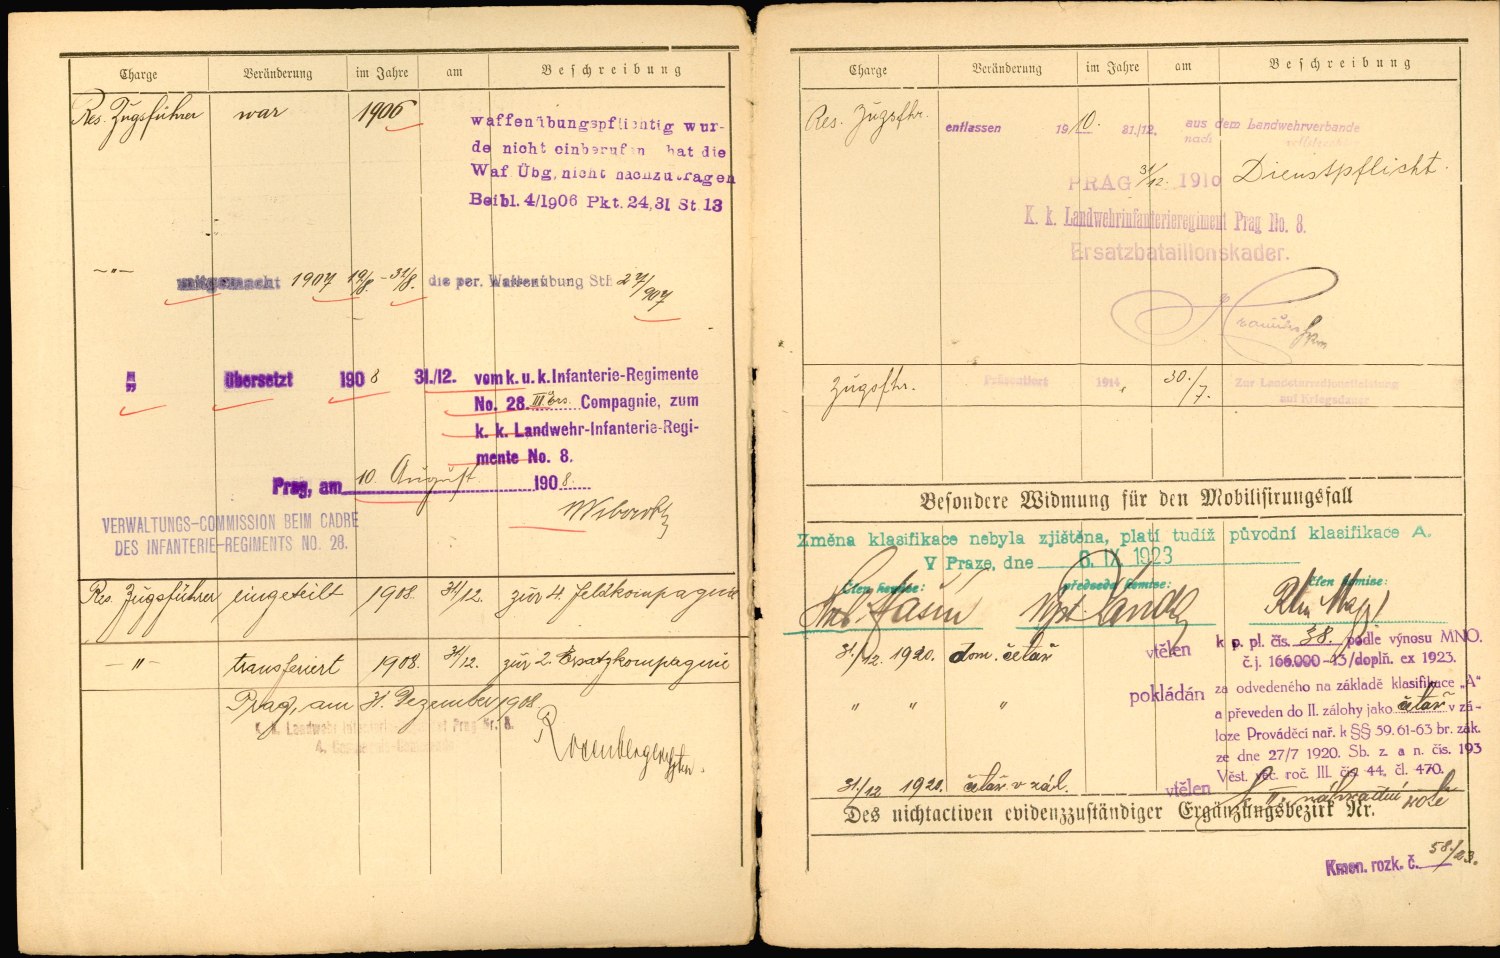 Charge Veränderung im Jahre am Beschreibung
Res. Zugsführer war 1906
waffenübungspflichtig wur-
de nicht einberufen hat die
Waf Übg. nicht nachzutragen
Beibl. 4/1906 Pkt. 24,31 St. 13
-"- mitgemacht 1907 19/8. - 31/8. die per. Waffenübung StB 27/907
" übersetzt 1908 31./12. vom k. u. k. Infanterie-Regimente
No. 28. III. Ers. Compagnie, zum
k. k. Landwehr-Infanterie-Regi-
mente No. 8.
Prag, am 10 August 1908.
VERWALTUNGS-COMMISSION BEIM CADRE
DES INFANTERIE-REGIMENTS NO. 28.
Res. Zugsführer eingeteilt 1908. 31/12. zur 4 Feldkompagnie
-"- transferiert 1908. 31/12. zur 2. Ersatzkompagnie
Prag, am 31. Dezember 1908.
Charge Veränderung im Jahre am Beschreibung
Res. Zugsfhr. entlassen 1910. 31./12. aus dem Landwehrverbande
nach
Dienstpflicht.
PRAG 31/12. 1910
K. k. Landwehrinfanterieregiment Prag No. 8.
Ersatzbataillonskader.
Zugsfhr. Präsentiert 1914. 30./7. Zur Landsturmdienstleistung
auf Kriegsdauer
Besondere Widmung für den Mobilisirungsfall
Změna klasifikace nebyla zjištěna, platí tudíž původní klasifikace A.
V Praze, dne 6. IX. 1923
Člen komise: předseda komise: člen komise:
31./12. 1920. dom. četař vtělen k p. pl. čís. 38. podle výnosu MNO.
č.j. 166.000-13/doplň. ex 1923.
" " " pokládán za odvedeného na základě klasifikace „A"
a převeden do II. zálohy jako četař v zá-
loze Prováděcí nař. k §§ 59. 61-63 br. zák.
ze dne 27/7 1920. Sb. z. a n. čís. 193
Věst. věc. roč. III. čís 44, čl. 470.
31./12 1920. četař v zál. vtělen k II. náhradní rotě
Des nichtactiven evidenzzuständiger Ergänzungsbezirk Nr.
Kmen. rozk. č. 58./23.